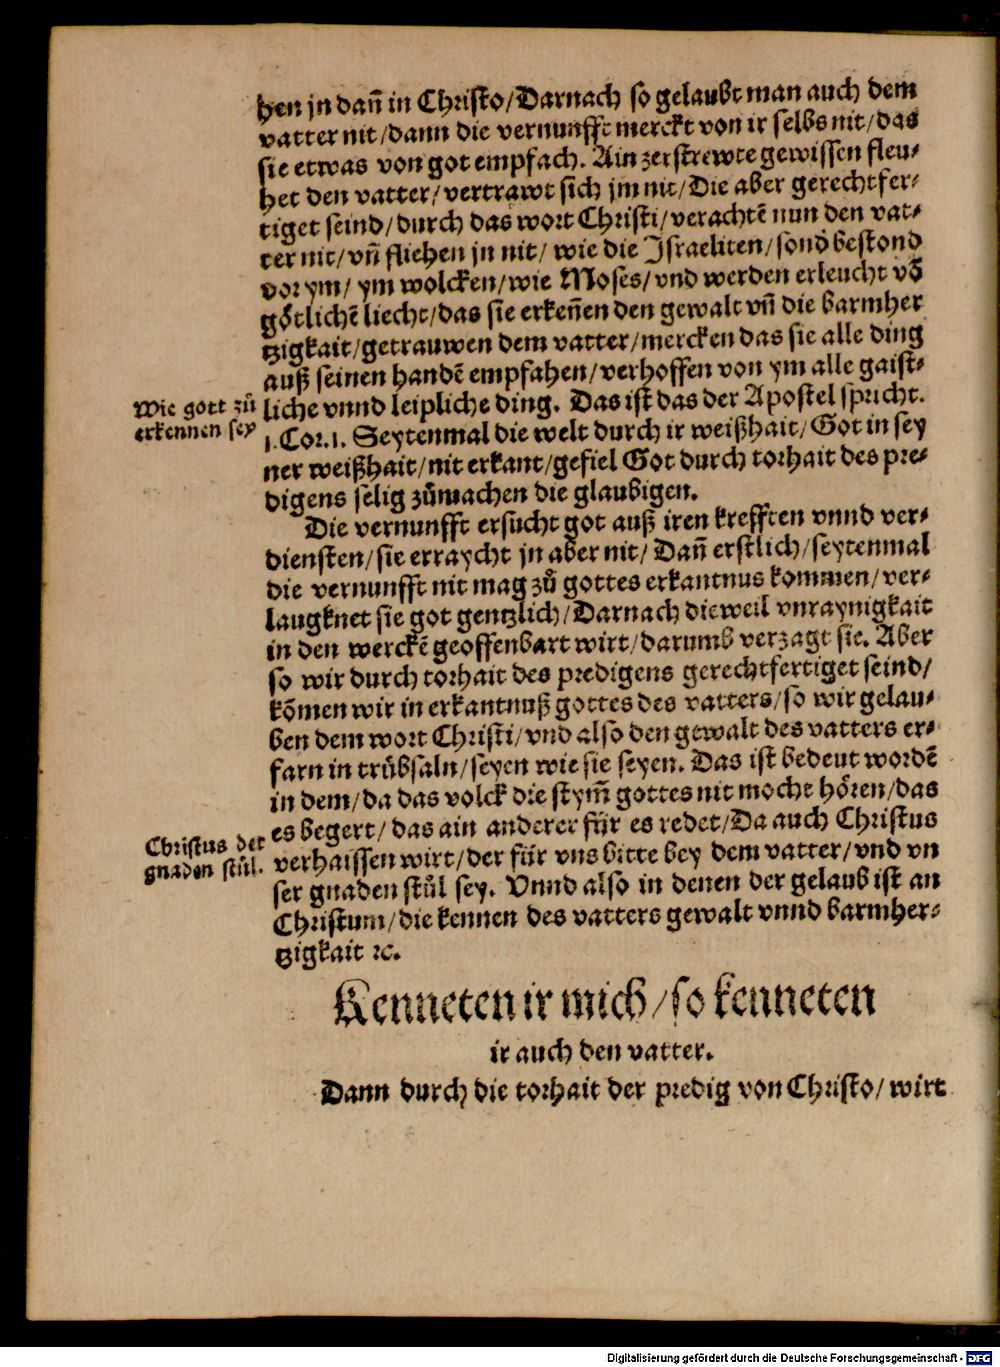 hen jn dañ in Christo/Darnach so gelaubt man auch dem
vatter nit/dann die vernunfft merckt von ir selbs nit/das
sie etwas von got empfach. Ain zerstrewte gewissen fleu-
het den vatter/vertrawt sich jm nit/Die aber gerechtfer-
tiget seind/durch das wort Christi/verachtē nun den vat-
ter nit/vñ fliehen jn nit/wie die Israeliten/sond bestond
vor ym/ym wolcken/wie Moses/vnd werden erleucht vō
götlichē liecht/das sie erkeñen den gewalt vñ die barmher
tzigkait/getrauwen dem vatter/mercken das sie alle ding
auß seinen handē empfahen/verhoffen von ym alle gaist-
Wie gott zů
erkennen sey
liche vnnd leipliche ding. Das ist das der Apostel spricht.
1.Cor.1. Seytenmal die welt durch ir weißhait/Got in sey
ner weißhait/nit erkant/gefiel Got durch torhait des pre-
digens selig zůmachen die glaubigen.
Die vernunfft ersucht got auß iren krefften vnnd ver-
diensten/sie erraycht jn aber nit/Dañ erstlich/seytenmal
die vernunfft nit mag zů gottes erkantnus kommen/ver-
laugknet sie got gentzlich/Darnach dieweil vnraynigkait
in den werckē geoffenbart wirt/darumb verzagt sie. Aber
so wir durch torhait des predigens gerechtfertiget seind/
kōmen wir in erkantnuß gottes des vatters/so wir gelau-
ben dem wort Christi/vnd also den gewalt des vatters er-
farn in trůbsaln/seyen wie sie seyen. Das ist bedeut wordē
in dem/da das volck die stym̃ gottes nit mocht hören/das
Christus der
gnaden stůl.
es begert/das ain anderer für es redet/Da auch Christus
verhaissen wirt/der für vns bitte bey dem vatter/vnd vn
ser gnaden stůl sey. Vnnd also in denen der gelaub ist an
Christum/die kennen des vatters gewalt vnnd barmher-
tzigkait ꝛc.
Kenneten ir mich/so kenneten
ir auch den vatter.
Dann durch die torhait der predig von Christo/wirt
Digitalisierung gefördert durch die Deutsche Forschungsgemeinschaft - DFG